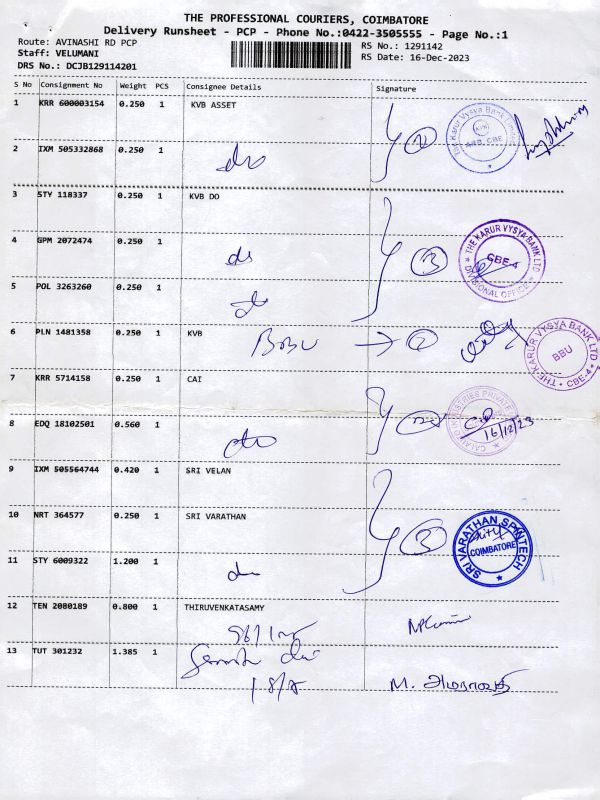 THE PROFESSIONAL COURIERS, COIMBATORE
Delivery Runsheet - PCP - Phone No.:0422-3505555 - Page No.:1
Route: AVINASHI RD PCP
Staff: VELUMANI
DRS No.: DCJB129114201
RS No.: 1291142
RS Date: 16-Dec-2023
S No Consignment No Weight PCS Consignee Details Signature
1 KRR 600003154 0.250 1 KVB ASSET
2 IXM 505332868 0.250 1 do
3 STY 118337 0.250 1 KVB DO
4 GPM 2072474 0.250 1 do
THE KARUR VYSYA BANK LTD
CBE-4
DIVISIONAL OFFICE
5 POL 3263260 0.250 1 do
6 PLN 1481358 0.250 1 KVB
THE KARUR VYSYA BANK LTD
BBU
CBE-4
7 KRR 5714158 0.250 1 CAI
8 EDQ 18102501 0.560 1 do
16/12/23
9 IXM 505564744 0.420 1 SRI VELAN
10 NRT 364577 0.250 1 SRI VARATHAN
SRI VARATHAN SPINTECH
COIMBATORE
11 STY 6009322 1.200 1 do
12 TEN 2080189 0.800 1 THIRUVENKATASAMY
13 TUT 301232 1.385 1